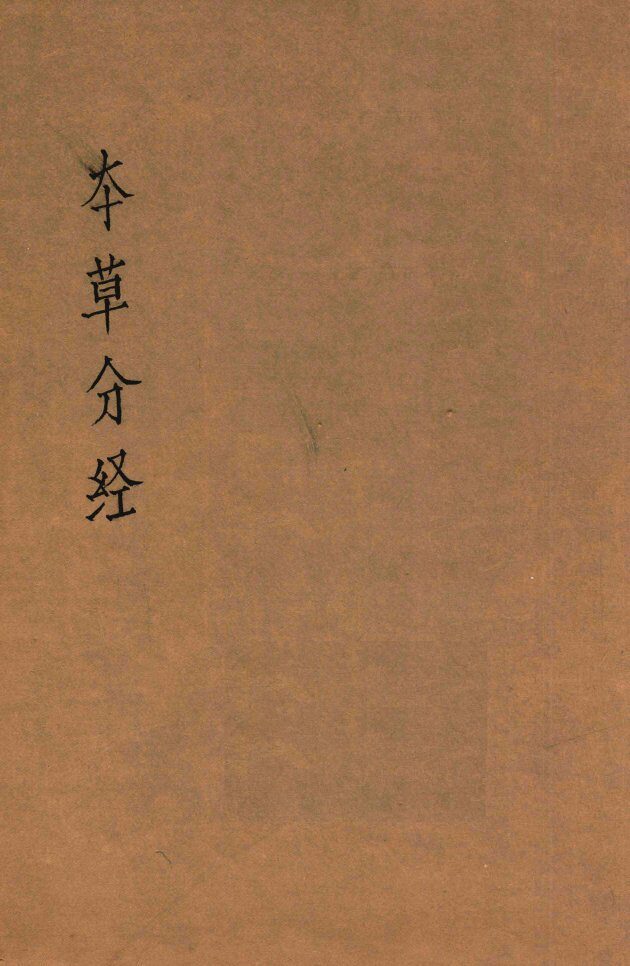 本草分经